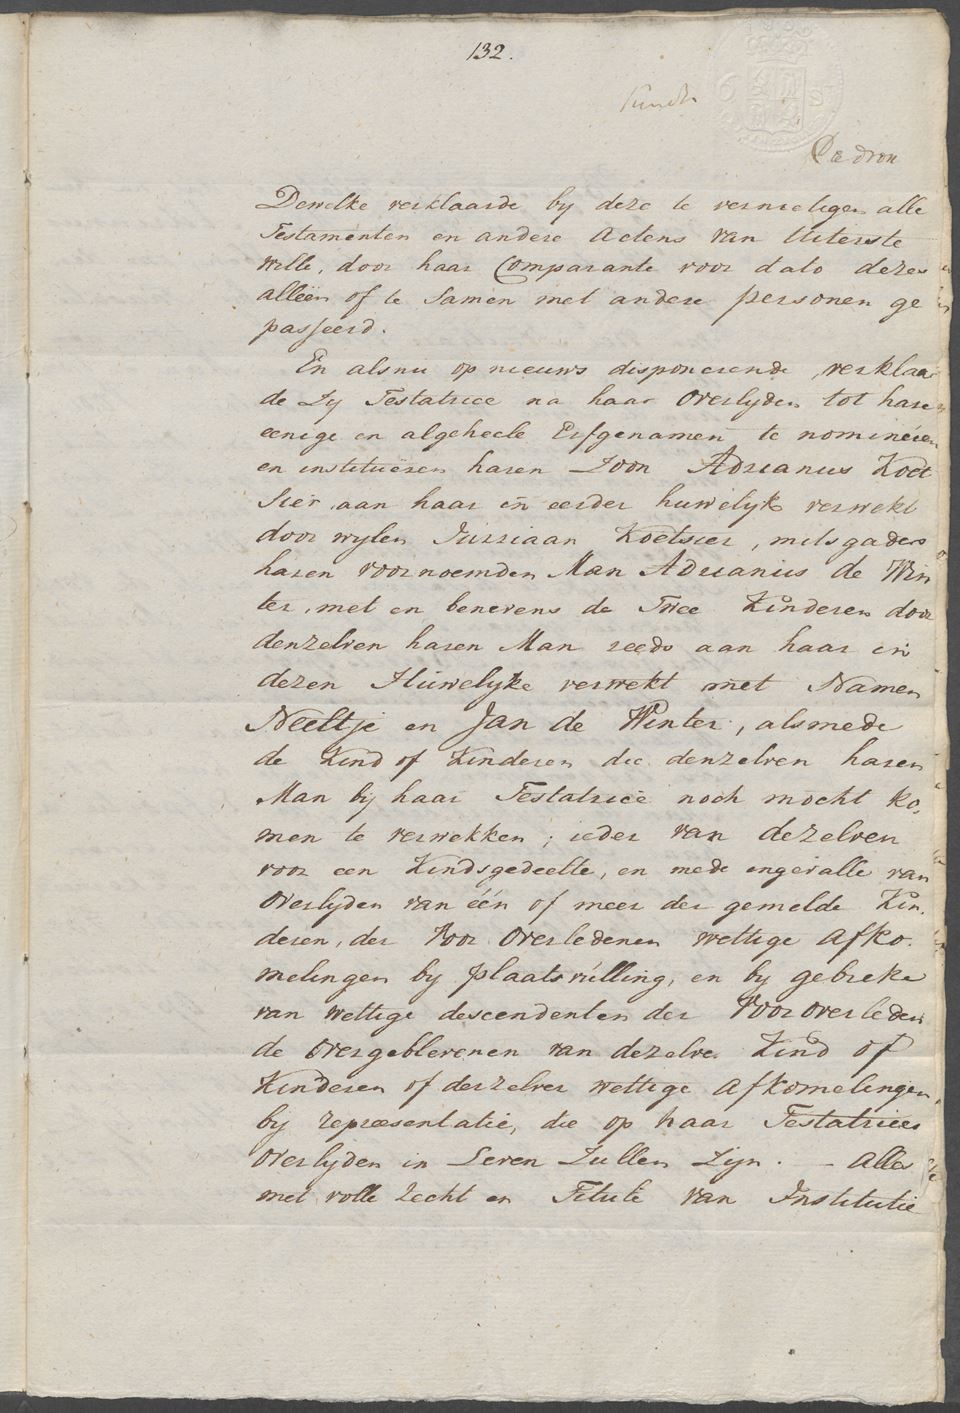 132.
6 S
Dewelke verklaarde by deze te vernietigen alle
Testamenten en andere Actens van Uiterste
Wille, door haar Comparante voor dato dezes
alleen of te Samen met andere personen ge
passeerd.
En alsnu op nieuws disponerende, verklaar
de Zy Testatrice na haar Overlyden tot hare
eenige en algeheele Erfgenamen te nomineren
en institueren haren Zoon Adrianus Koet
sier, aan haar in eerder huwelyk verwekt
door wylen Jurriaan Koetsier, mitsgaders
haren voornoemden Man Adrianus de Win
ter, met en benevens de Twee Kinderen door
denzelven haren Man reeds aan haar in
dezen Huwelyke verwekt met Namen
Neeltje en Jan de Winter, alsmede
de Kind of Kinderen die denzelven haren
Man by haar Testatrice noch mocht ko,
men te verwekken; ieder van dezelven
voor een Kindsgedeelte, en mede ingevalle van
Overlyden van één of meer der gemelde Kin,
deren, der Voor Overledenen wettige Afko.
melingen by plaatsvulling, en by gebreke
van wettige descendenten der Vooroverleden
de overgeblevenen van dezelve Kind of
Kinderen of derzelver wettige afkomelingen
by repræsentatie, die op haar Testatrices
Overlyden in Leven Zullen Zyn. — Alles
met volle recht en Titule van Institutie